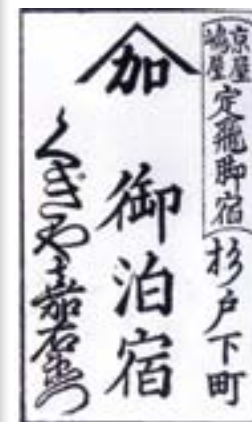 京屋
嶋屋
定飛脚宿
杉戸下町
加
御泊宿
くぎや嘉右衛門